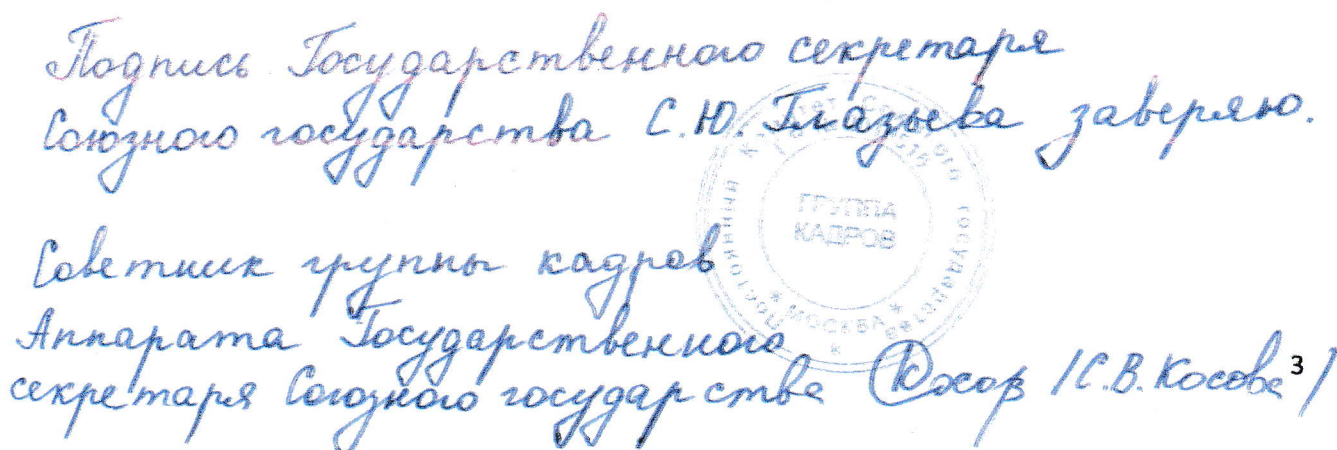 Подпись Государственного секретаря
Союзного государства С.Ю. Глазьева заверяю.
Постоянный Комитет Союзного государства
ГРУППА
КАДРОВ
* МОСКВА *
Советник группы кадров
Аппарата Государственного
секретаря Союзного государства /С.В. Косова/
3